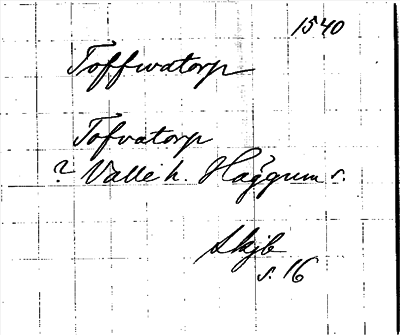 1540
Toffwatorp
Tofvatorp
? Valle h. Häggum s.
Skjb
s. 16